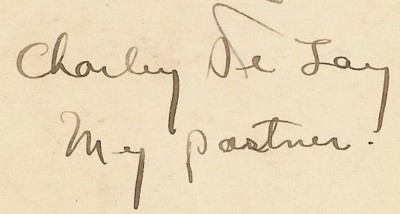 Charley De Lay
My partner.